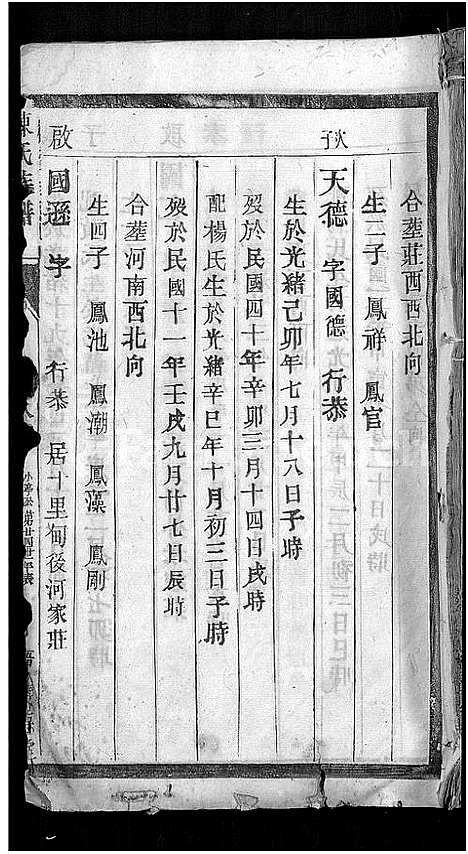 合塟莊西西北向
生二子 鳳祥 鳳官
狄子
天德 字國德 行恭
生於光緒己卯年七月十八日子時
歿於民國四十年辛卯三月十四日戌時
配楊氏生於光緒辛巳年十月初三日子時
歿於民國十一年壬戌九月廿七日辰時
合塟河南西北向
生四子 鳳池 鳳潮 鳳藻 鳳剛
啟
國遜 字 行恭 居十里甸後河家莊
陳氏族譜
第廿四世年表